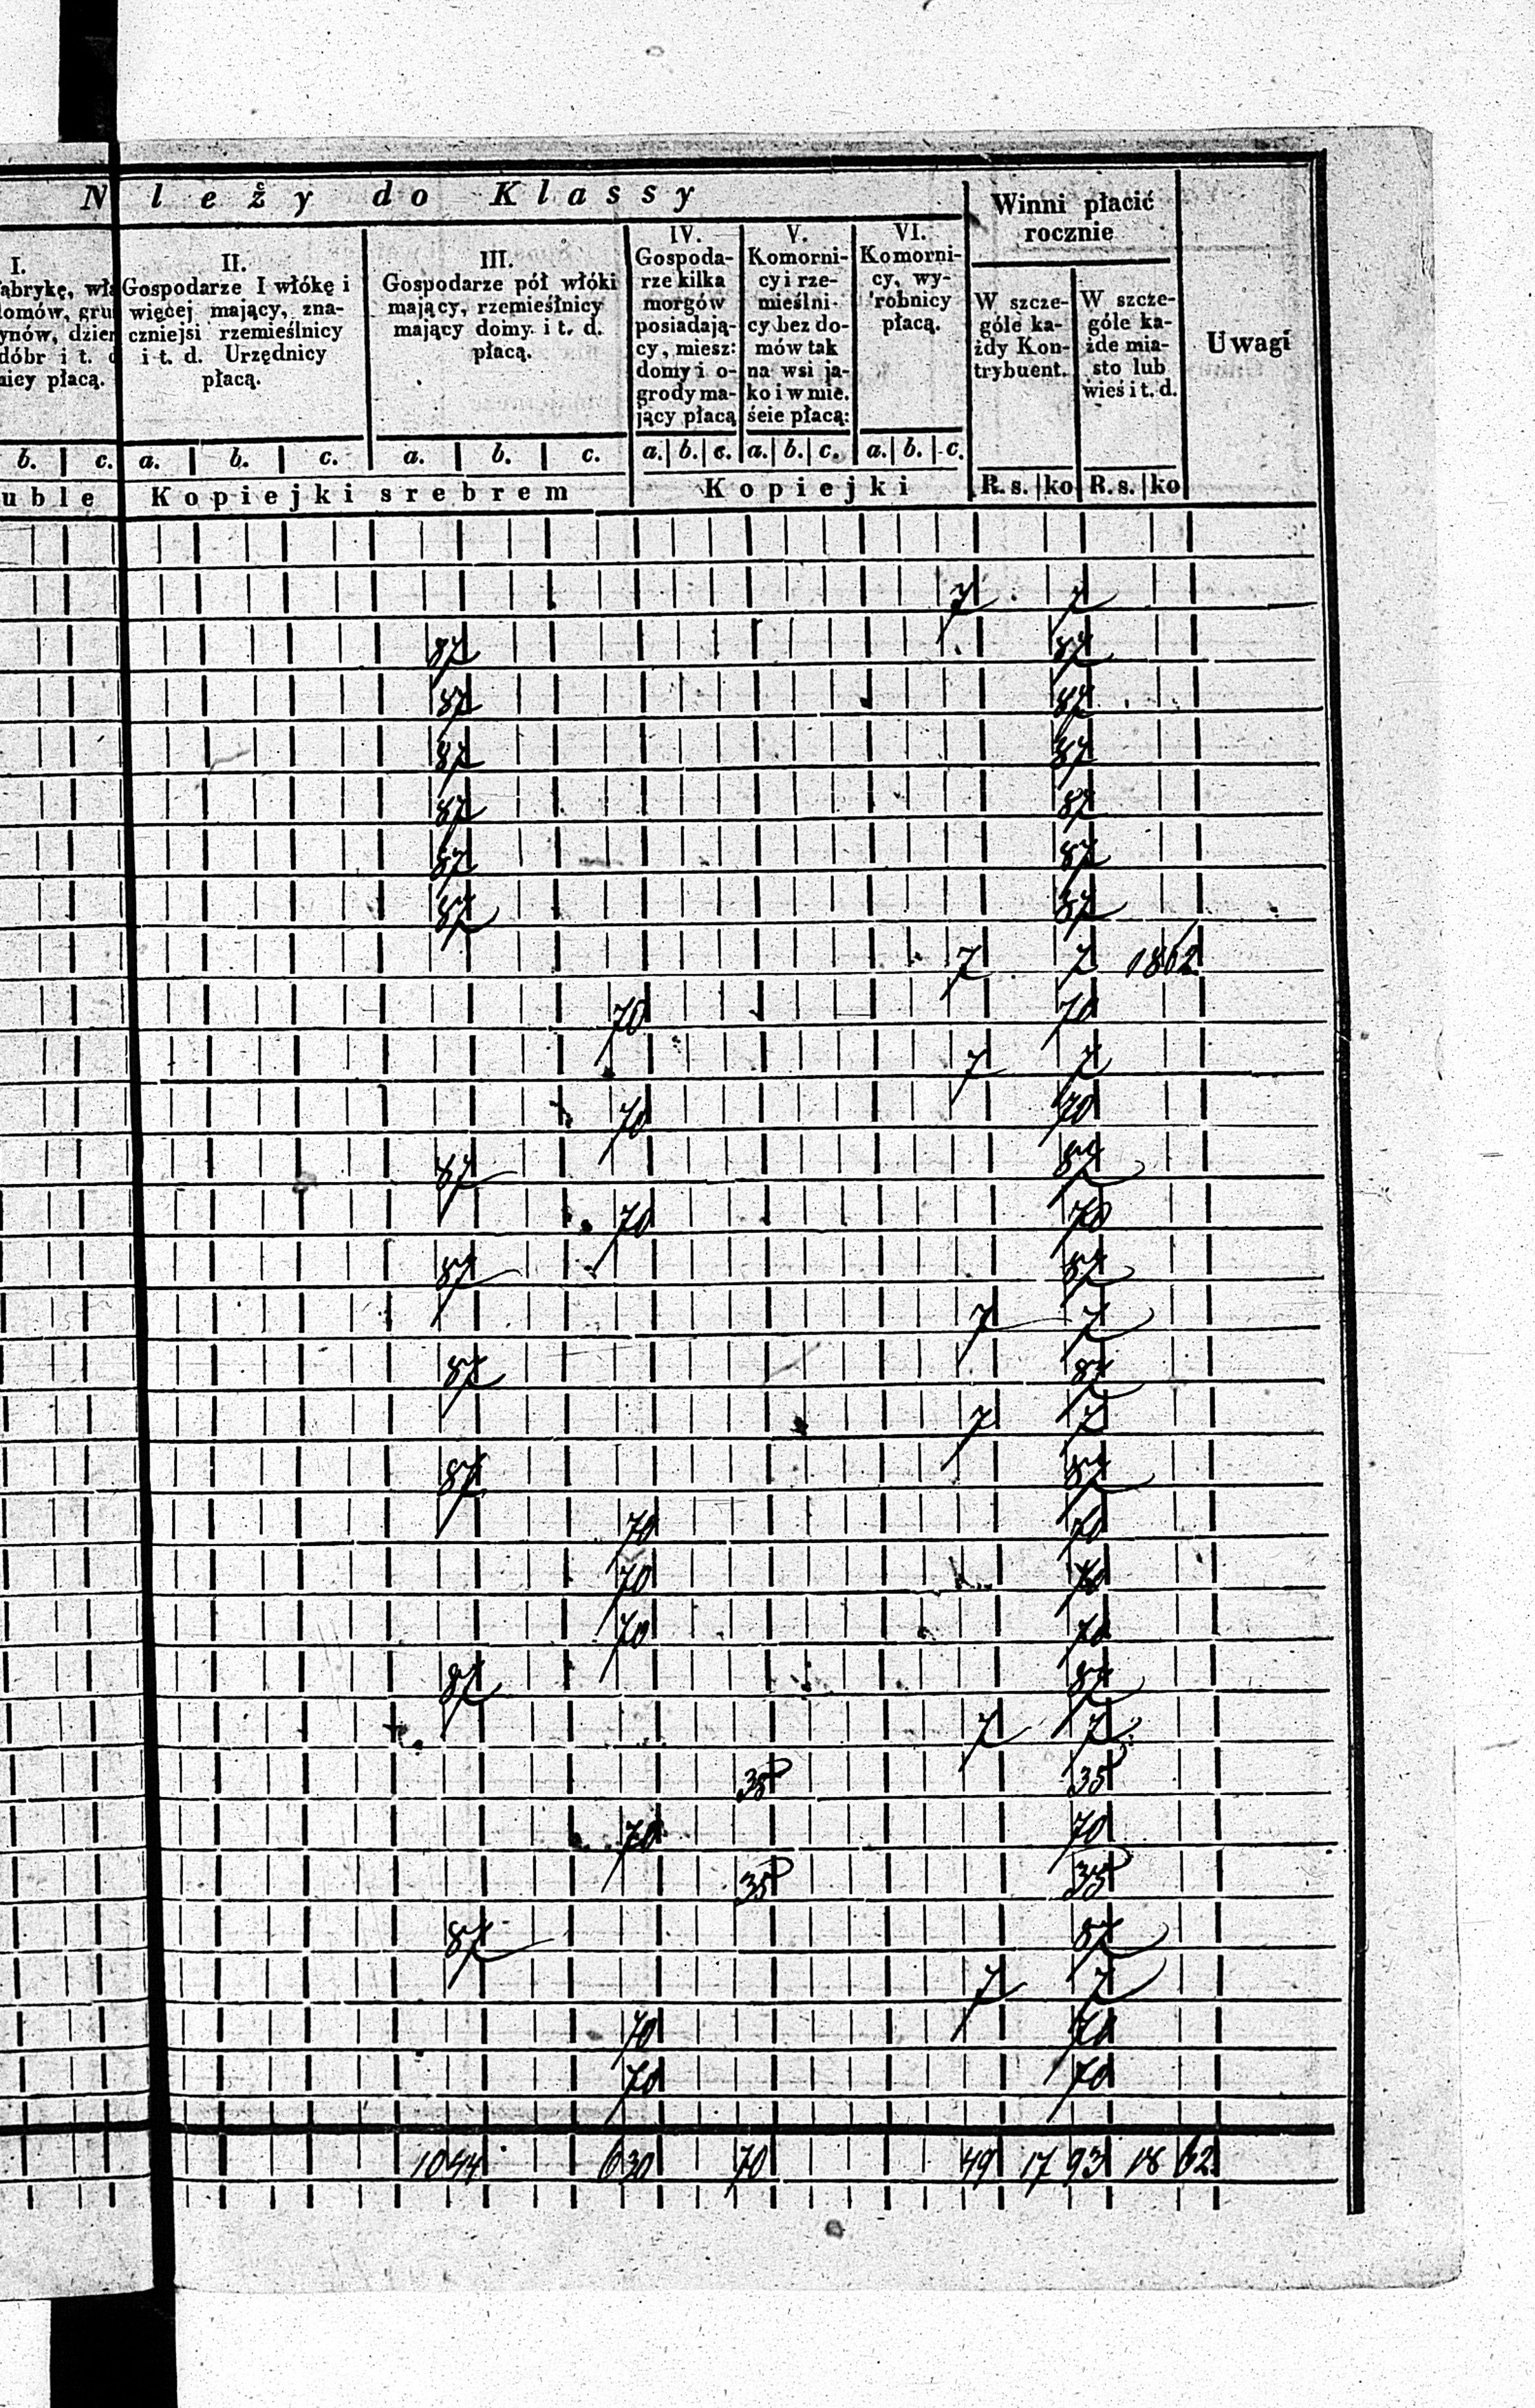 N leży do Klassy
Winni płacić
rocznie
I.
fabrykę, wła
domów, gru
ynów, dzier
dóbr i t. d
niey płacą.
II.
Gospodarze I włókę i
więcej mający, zna-
czniejsi rzemieślnicy
i t. d. Urzędnicy
płacą.
III.
Gospodarze pół włóki
mający, rzemieślnicy
mający domy. i t. d.
płacą.
IV.
Gospoda-
rze kilka
morgów
posiadają-
cy, miesz:
domy i o-
grody ma-
jący płacą
V.
Komorni-
cy i rze-
mieślni-
cy bez do-
mów tak
na wsi ja-
ko i w mie.
ście płacą:
VI.
Komorni-
cy, wy-
robnicy
płacą.
W szcze-
góle ka-
żdy Kon-
trybuent.
W szcze-
góle ka-
żde mia-
sto lub
wieś i t. d.
Uwagi
b. c. a. b. c. a. b. c. a. b. c. a. b. c. a. b. c.
uble Kopiejki srebrem Kopiejki R. s. ko R. s. ko
7 7
87 87
87 87
87 87
87 87
87 87
87 87
7 7 1862
70 70
7 7
70 70
87 87
70 70
87 87
7 7
87 87
7 7
87 87
70 70
70 70
70 70
87 87
7 7
35 35
70 70
35 35
87 87
7 7
70 70
70 70
1044 630 70 49 17 93 18 62